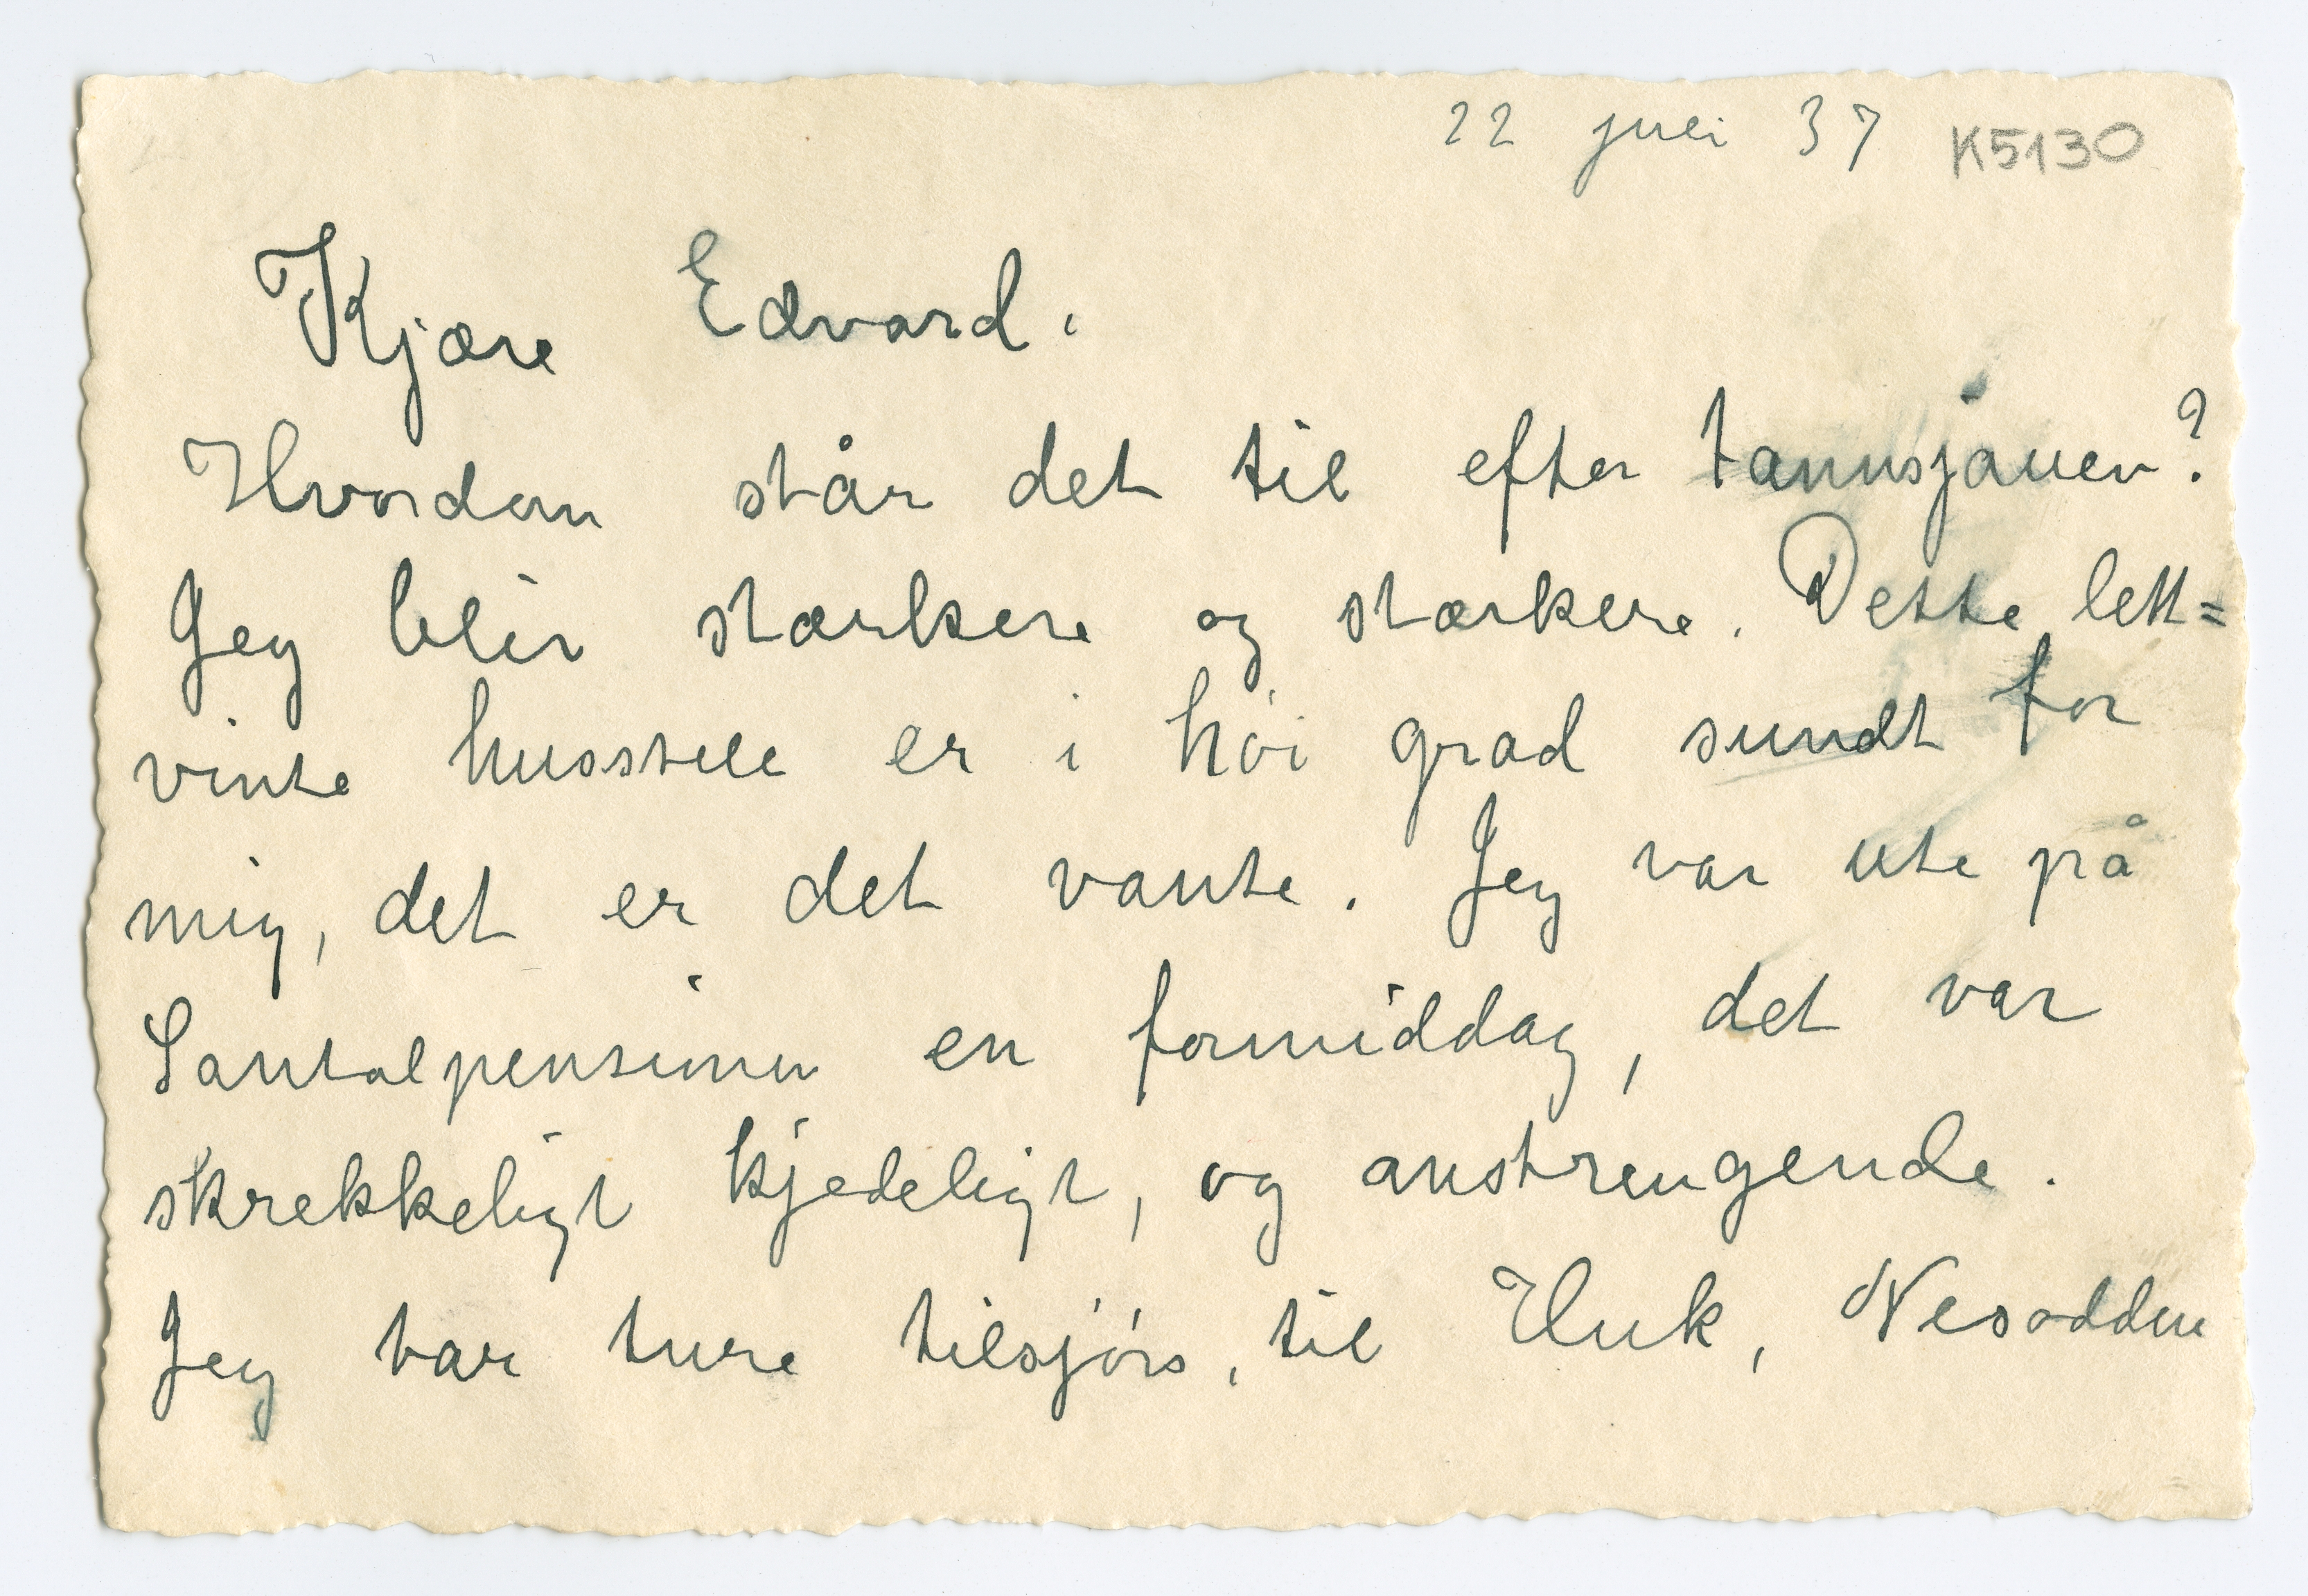 22 juli 37 K5130
Kjære Edvard.
Hvordan står det til efter tannsjauen?
Jeg blir stærkere og stærkere. Dette lett=
vinte husstell er i høi grad sundt for
mig, det er det vante. Jeg var ute på
Santalpensionen en formiddag, det var
skrekkeligt kjedeligt, og anstrengende.
Jeg tar ture tilsjørs, til Huk, Nesodden